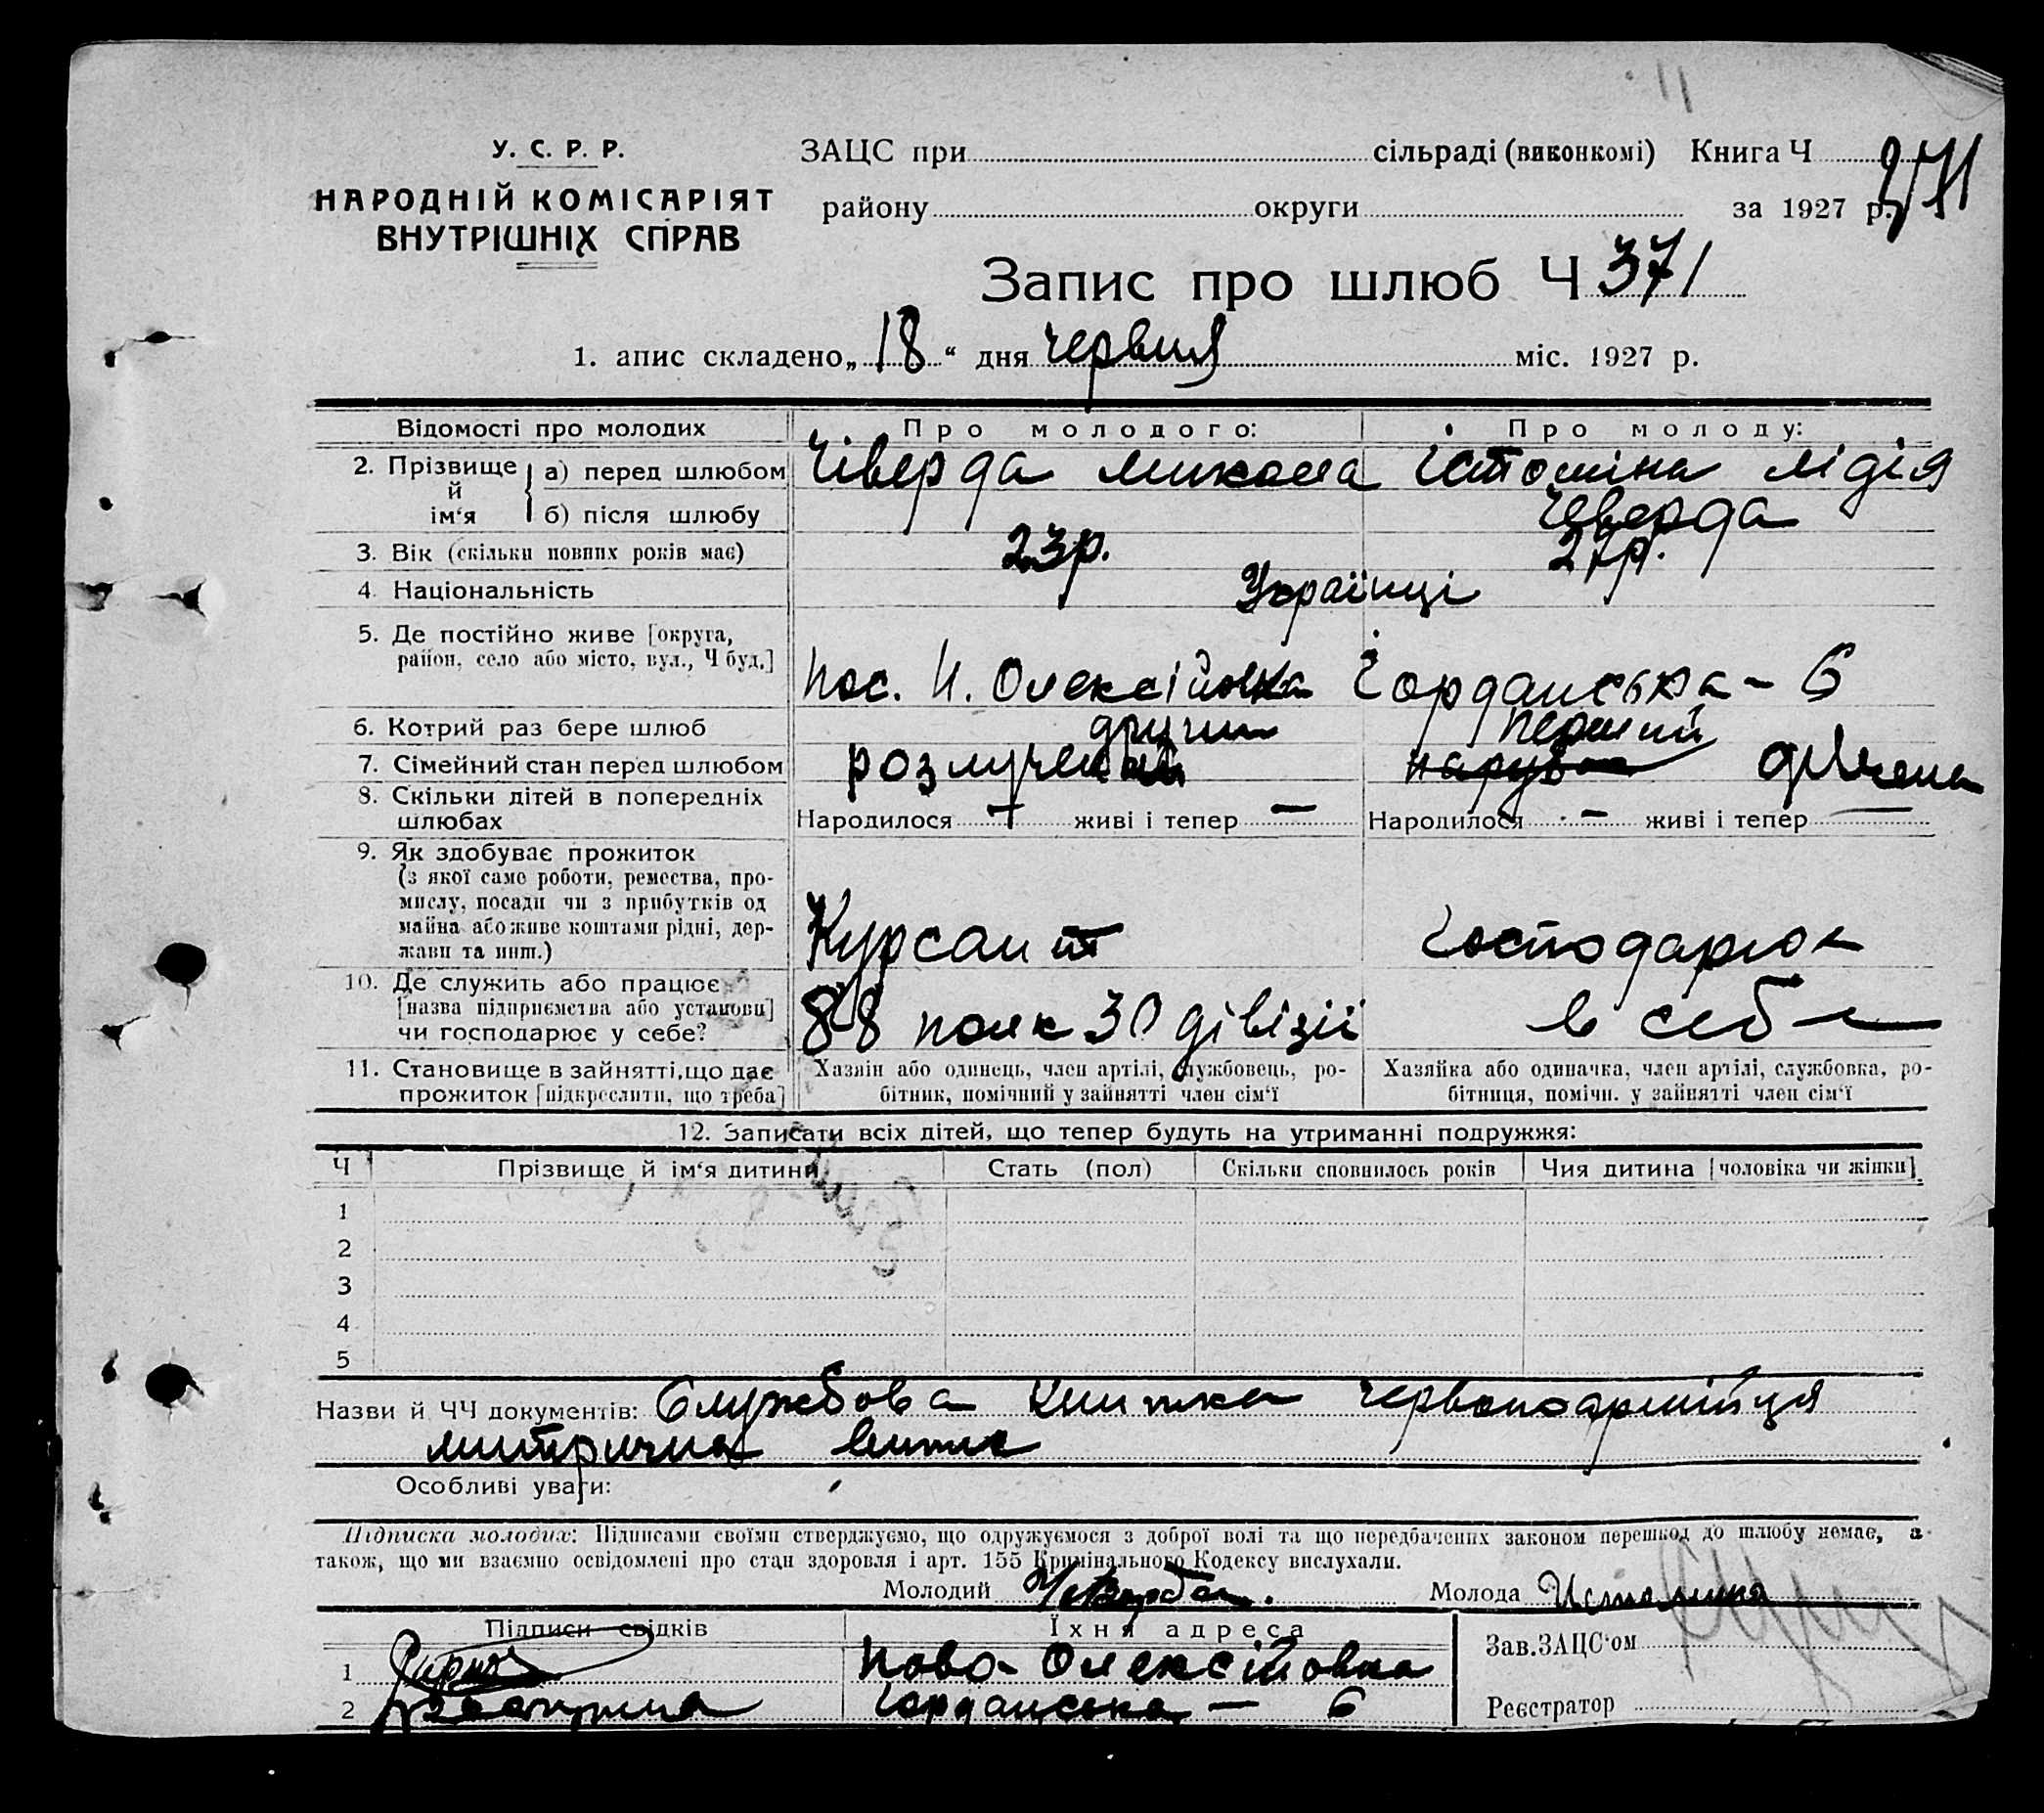 У. С. Р. Р.
НАРОДНІЙ КОМІСАРІЯТ
ВНУТРІШНІХ СПРАВ
ЗАЦС при сільраді (виконкомі) Книга Ч
району округи за 1927 р.
Запис про шлюб Ч 371
1. апис складено „18“ дня червня міс. 1927 р.
Відомості про молодих Про молодого: Про молоду:
2. Прізвище й ім‘я а) перед шлюбом Чеверда Микола Істоміна Лідія
б) після шлюбу Чеверда
3. Вік (скільки повних років має) 23р. 27р.
4. Національність Українці
5. Де постійно живе [округа,
район, село або місто, вул., Ч буд.] пос. Н. Олексіївка Іорданська - 6
6. Котрий раз бере шлюб другий перший
7. Сімейний стан перед шлюбом розлучений дівчена
8. Скільки дітей в попередніх
шлюбах Народилося — живі і тепер — Народилося — живі і тепер —
9. Як здобуває прожиток
(з якої само роботи, ремества, про-
мислу, посади чи з прибутків од
майна або живе коштами рідні, дер-
жави та инш.) Курсант Господарює
10. Де служить або працює
[назва підприємства або установи]
чи господарює у себе? 88 полк 30 дівізії в себе
11. Становище в зайнятті, що дає
прожиток [підкреслити, що треба]
Хазяін або одинець, член артілі, службовець, ро-
бітник, помічний у зайнятті член сім‘ї
Хазяйка або одиначка, член артілі, службовка, ро-
бітниця, помічн. у зайнятті член сім‘ї
12. Записати всіх дітей, що тепер будуть на утриманні подружжя:
Ч Прізвище й ім‘я дитини Стать (пол) Скільки сповнилось років Чия дитина [чоловіка чи жінки]
1
2
3
4
5
Назви й ЧЧ документів: Службова книжка червоноармійця
митрична випис
Особливі уваги:
Підписка молодих: Підписами своїми стверджуємо, що одружуємося з доброї волі та що передбачених законом перешкод до шлюбу немає, а
також, що ми взаємно освідомлені про стан здоровля і арт. 155 Кримінального Кодексу вислухали.
Молодий Чеверда Молода Истомина
Підписи свідків Їхня адреса
1 Ново-Олексіївка
2 Іорданська — 6
Зав. ЗАЦС‘ом
Реєстратор